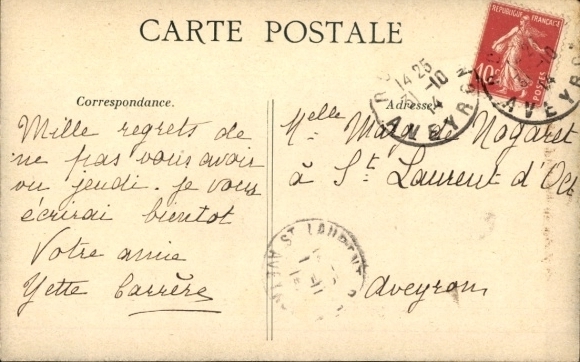 CARTE POSTALE
REPUBLIQUE FRANÇAISE
10c
POSTES
14 25
31-10
14
AVEYRON
AVEYRO
Correspondance.
Adresse
Mille regrets de
ne pas vous avoir
vu jeudi. Je vous
écrirai bientot
Votre amie
Yette Carrère
Melle Nogaret
à St Laurent d'Olt
Aveyron
ST LAURENT